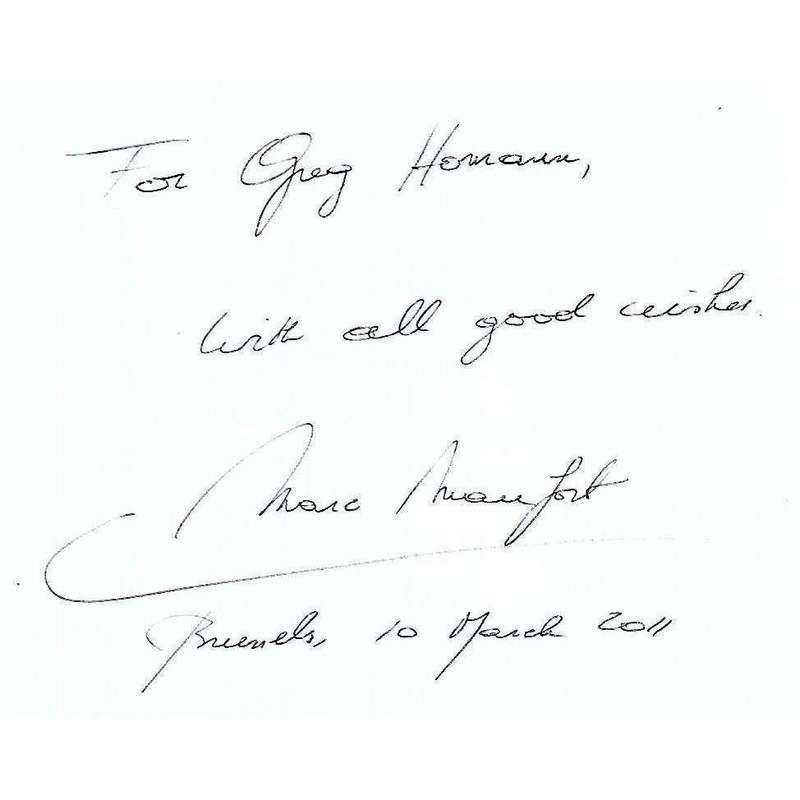 For Greg Homann,
with all good wishes.
Marc Maufort
Brussels, 10 March 2011